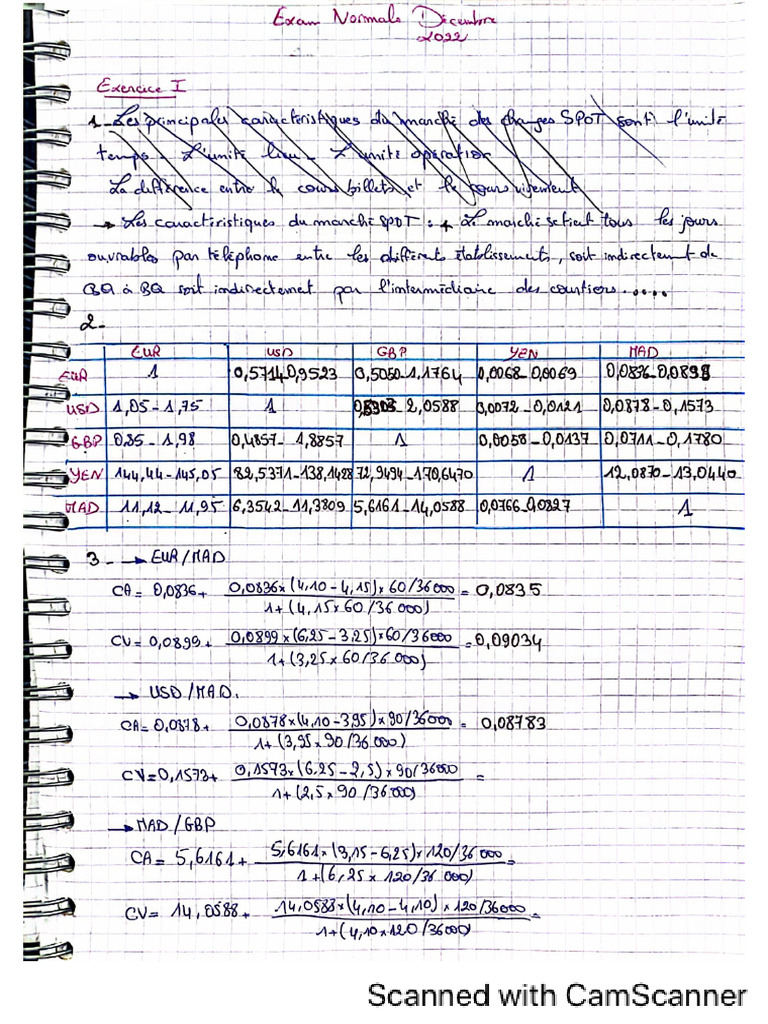 Exam Normale Décembre
2022
Exercice I
1- Les principales caractéristiques du marché des changes SPOT sont: l'unité
temps - L'unité lieu - L'unité opération
La différence entre le cours billets et le cours virement
→ Les caractéristiques du marché SPOT : Le marché se tient tous les jours
ouvrables par téléphone entre les différents établissements, soit indirectement de
BQ à BQ soit indirectement par l'intermédiaire des courtiers.....
2-
EUR USD GBP YEN MAD
EUR 1 0,5714-0,9523 0,5050-1,1764 0,0068-0,0069 0,0836-0,0899
USD 1,05-1,75 1 2,0588 0,0072-0,0121 0,0878-0,1573
GBP 0,85-1,98 0,4857-1,8857 1 0,0058-0,0137 0,0711-0,1780
YEN 144,44-145,05 82,5371-138,1428 72,9494-170,6470 1 12,0870-13,0440
MAD 11,12-11,95 6,3542-11,3809 5,6161-14,0588 0,0766-0,0827 1
3- → EUR/MAD
CA= 0,0836+ 0,0836×(4,10-4,15)×60/36000 = 0,0835
1+(4,15×60/36000)
CV= 0,0899+ 0,0899×(6,25-3,25)×60/36000 = 0,09034
1+(3,25×60/36000)
→ USD/MAD.
CA= 0,0878+ 0,0878×(4,10-3,95)×90/36000 = 0,08783
1+(3,95×90/36000)
CV= 0,1573+ 0,1573×(6,25-2,5)×90/36000 =
1+(2,5×90/36000)
→ MAD/GBP
CA= 5,6161+ 5,6161×(3,15-6,25)×120/36000 =
1+(6,25×120/36000)
CV= 14,0588+ 14,0588×(4,10-4,10)×120/36000 =
1+(4,10×120/36000)
Scanned with CamScanner